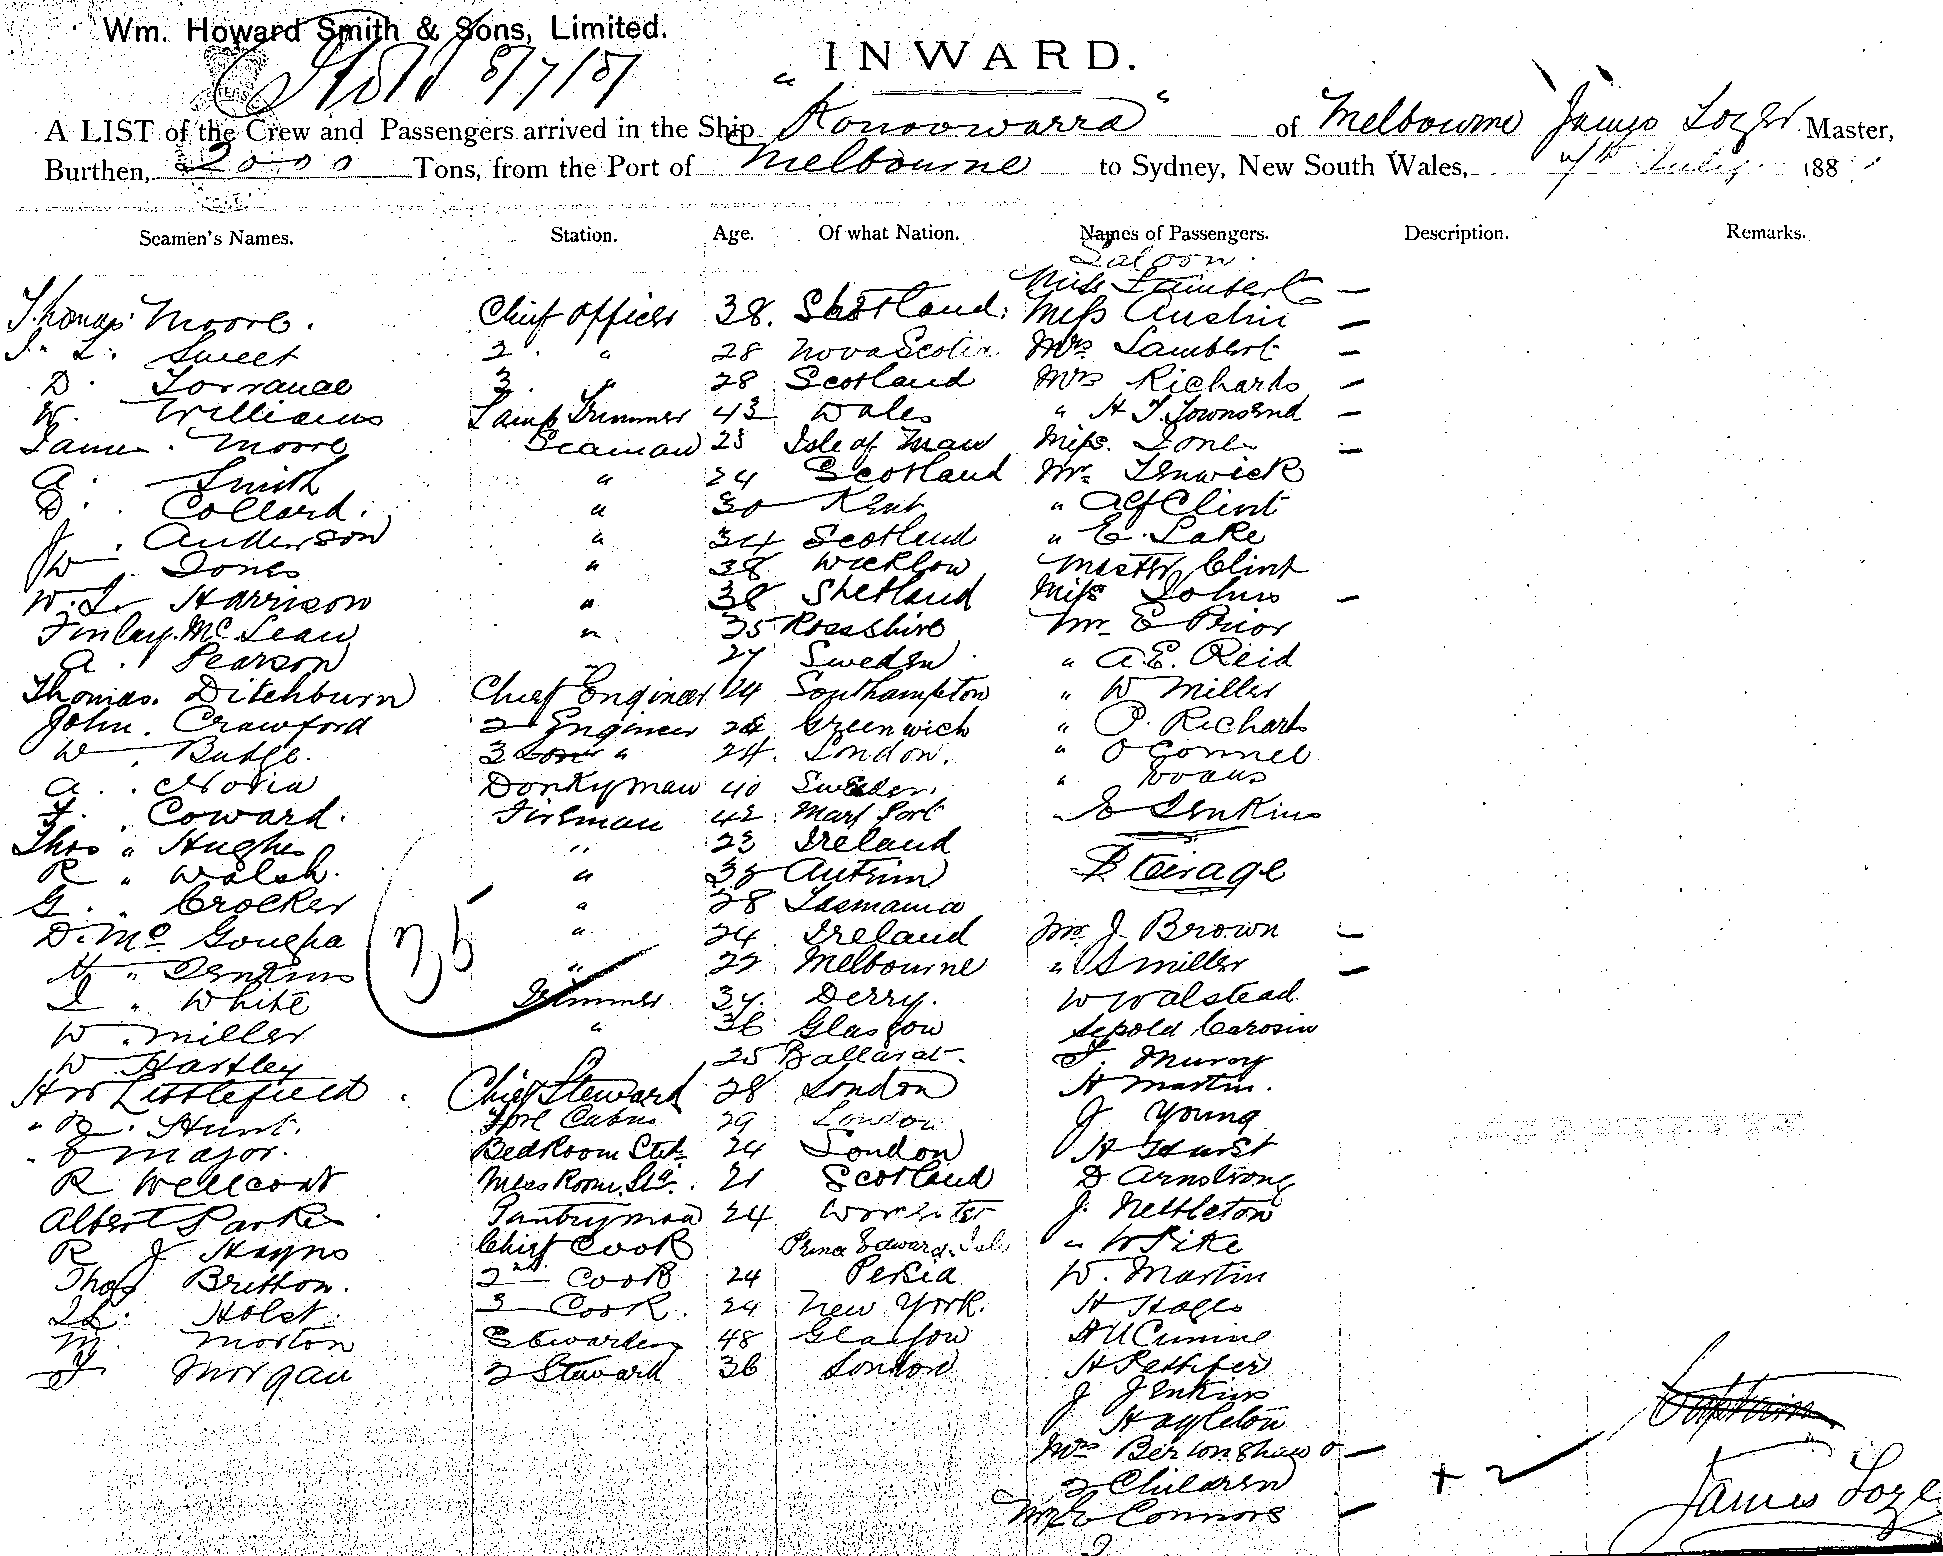 Wm. Howard Smith & Sons, Limited.
INWARD.
A LIST of the Crew and Passengers arrived in the Ship "Konoowarra" of Melbourne James Lozer Master,
Burthen, 2000 Tons, from the Port of Melbourne to Sydney, New South Wales, July 188
Seamen's Names. Station. Age. Of what Nation. Names of Passengers. Description. Remarks.
Saloon.
Miss Lambert —
Thomas Moore. Chief Officer 38. Shetland. Miss Austin —
Sweet 2 " 28 Nova Scotia Mrs Lambert —
D. Torrance 3. " 28 Scotland Mrs Richards —
W. Williams Lamp Trimmer 43 Wales " H T. Townsend —
James Moore Seaman 23 Isle of Man Miss. Jones —
A. Smith " 24 Scotland Mr. Fenwick
D. Collard. " 30 Kent " Alf Clint
J. Anderson " 34 Scotland " E. Lake
W Jones " 38 Wicklow Master Clint
W. L. Harrison " 38 Shetland Miss Johns —
Finlay Mc Lean " 35 Rossshire Mr E Prior
A. Pearson " 27 Sweden " A. E. Reid
Thomas. Ditchburn Chief Engineer 24 Southampton " W Miller
John. Crawford 2 Engineer 24 Greenwich " P. Richards
W. Budge. 3 " 24. London. " O Connel
A. Sweden. Donkyman 40 " Evans
F. Coward. Fireman 42 Mary Port E Jenkins
Thos " Hughes " 23 Ireland
R " Walsh. " 38 Antrim Steirage
G. " Crocker " 28 Tasmania
D. Mc Gougha " 24 Ireland Mr J Brown —
H " Jenkins " 22 Melbourne " S Miller —
J " White Trimmer 34. Derry. W Walstead
W. Miller " 36 Glasgow Carosin
W Hartley 25 Ballarat. T. Murray
H W Littlefield. Chief Steward 28 London H Martin.
" Hunt. Fore Cabin 29 London J Young
" E Major. Bed Room Std. 24 London H Hurst
R Wellcoat Mess Room Std. 21 Scotland D Armstrong
Albert Parker Pantryman 24 Worcester J. Nettleton
R J Hayns Chief Cook Prince Edward Isle " W Pike
Thos Britton. 2nd Cook 24 W. Martin
Holst. 3 Cook. 24 New York. H
M. Morton Stewardess 48 Glasgow
J Morgan 2 Steward 36 London H Pettifer
J Jenkins
Hayleton
Mrs Bertonshaw —
2 Children + 2
Connors —
35
Captain
James Loze